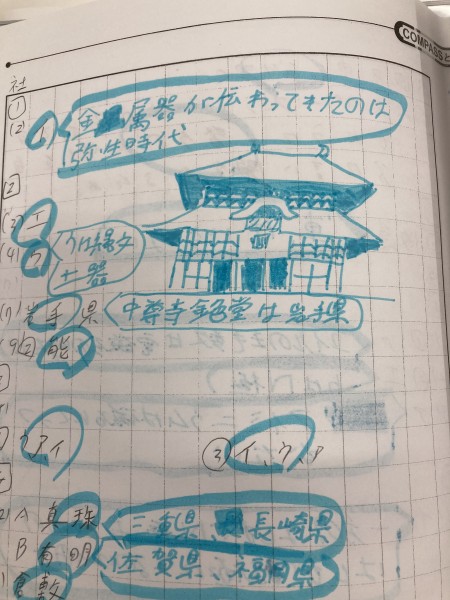 COMPASS
社
①
(2) イ 金属器が伝わってきたのは
弥生時代
2
(3) エ
(4) ウ うは縄文
土器
(7) 岩手県 中尊寺金色堂は岩手県
(9) ② 能
ウアイ ③ イ、ウ、ア
A 真珠 三重県、長崎県
B 有明 佐賀県、福岡県
倉敷